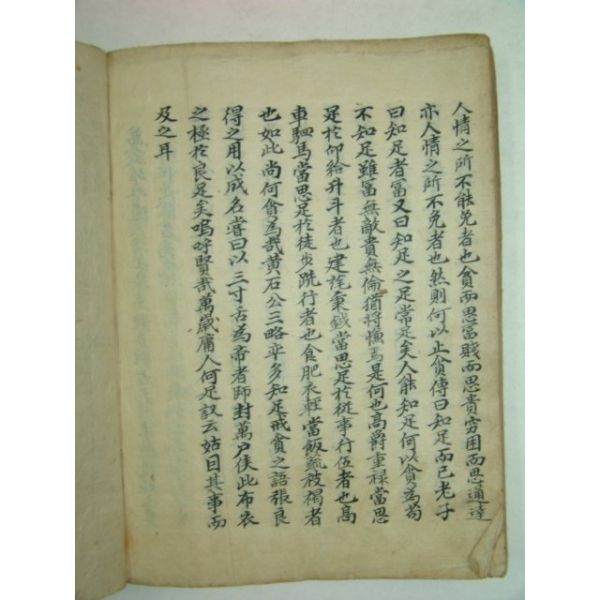 人情之所不能免者也貧而思富賤而思貴窮困而思通達
亦人情之所不免者也然則何以止貧傳曰知足而已老子
曰知足者富又曰知足之足常足矣人能知足何以貧為苟
不知足雖富無敵貴無倫猶將慊焉是何也高爵重祿當思
足於仰給升斗者也建旄秉鉞當思足於從事行伍者也高
車駟馬當思足於徒步跣行者也食肥衣輕當飯蔬被褐者
也如此尚何貧為哉黃石公三略平多知足戒貪之語張良
得之用以成名嘗曰以三寸舌為帝者師封萬戶侯此布衣
之極於良足矣嗚呼賢哉萬歲庸人何足議云姑因其事而
及之耳